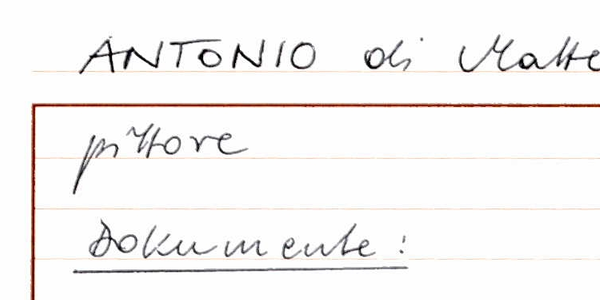 ANTONIO di Matte
pittore
Dokumente :